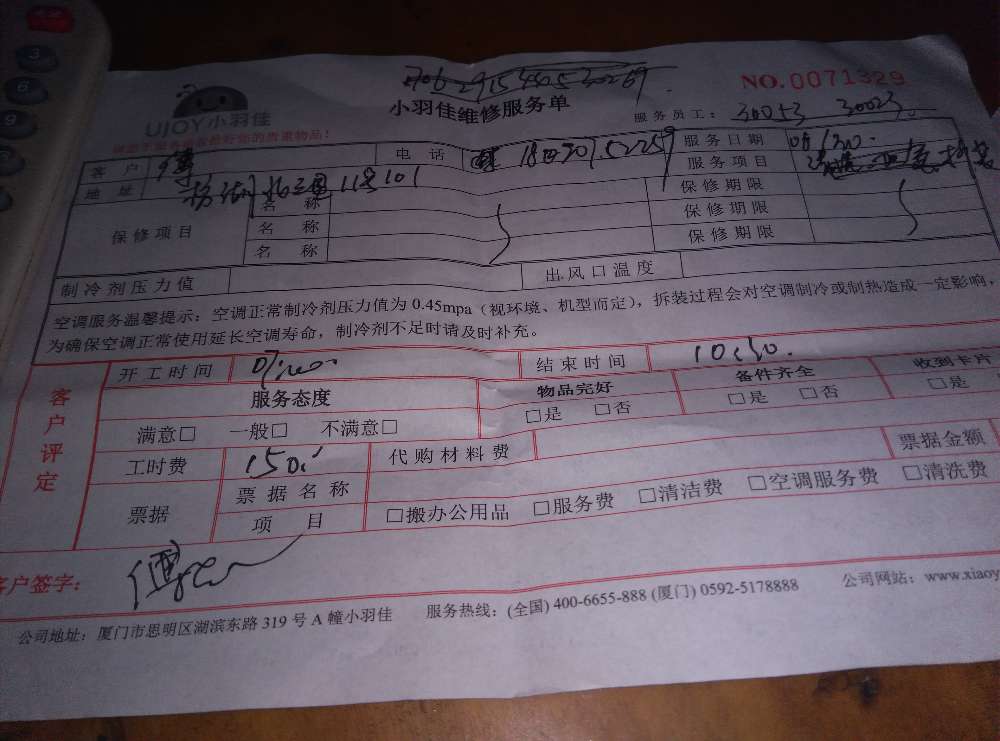 NO.0071329
UJOY小羽佳
小羽佳维修服务单
服务员工： 30053 30023
客户
电话
服务日期
地址 118 101
服务项目
保修项目
名称
保修期限
名称
保修期限
名称
保修期限
制冷剂压力值
出风口温度
空调服务温馨提示：空调正常制冷剂压力值为0.45mpa（视环境、机型而定），拆装过程会对空调制冷或制热造成一定影响，
为确保空调正常使用延长空调寿命，制冷剂不足时请及时补充。
客户评定
开工时间
结束时间 10:30.
服务态度
物品完好
备件齐全
收到卡片
满意□ 一般□ 不满意□
□是 □否
□是 □否
□是
工时费 150.
代购材料费
票据金额
票据
票据名称
项目
□搬办公用品 □服务费 □清洁费 □空调服务费 □清洗费
客户签字：
公司地址：厦门市思明区湖滨东路319号A幢小羽佳 服务热线：(全国) 400-6655-888 (厦门) 0592-5178888 公司网站：www.xiaoy